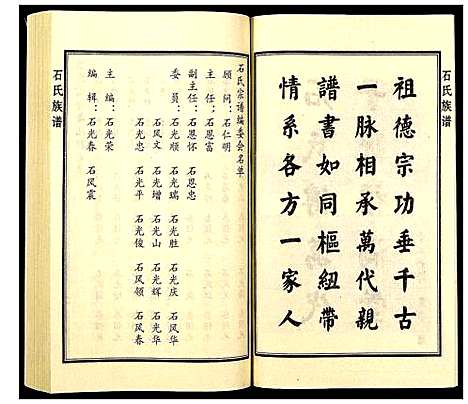 祖德宗功垂千古
一脉相承萬代親
譜書如同樞紐帶
情系各方一家人
石氏族谱
石氏宗谱编委会名单
顾问：石仁明
主任：石恩富
副主任：石恩怀 石恩忠
委员：石光顺 石光瑞 石光胜 石光庆 石风华
石风文 石光增 石光山 石光辉 石光华
石光忠 石光平 石光俊 石风领 石风春
主编：石光荣
编辑：石光春 石风震
石氏族谱